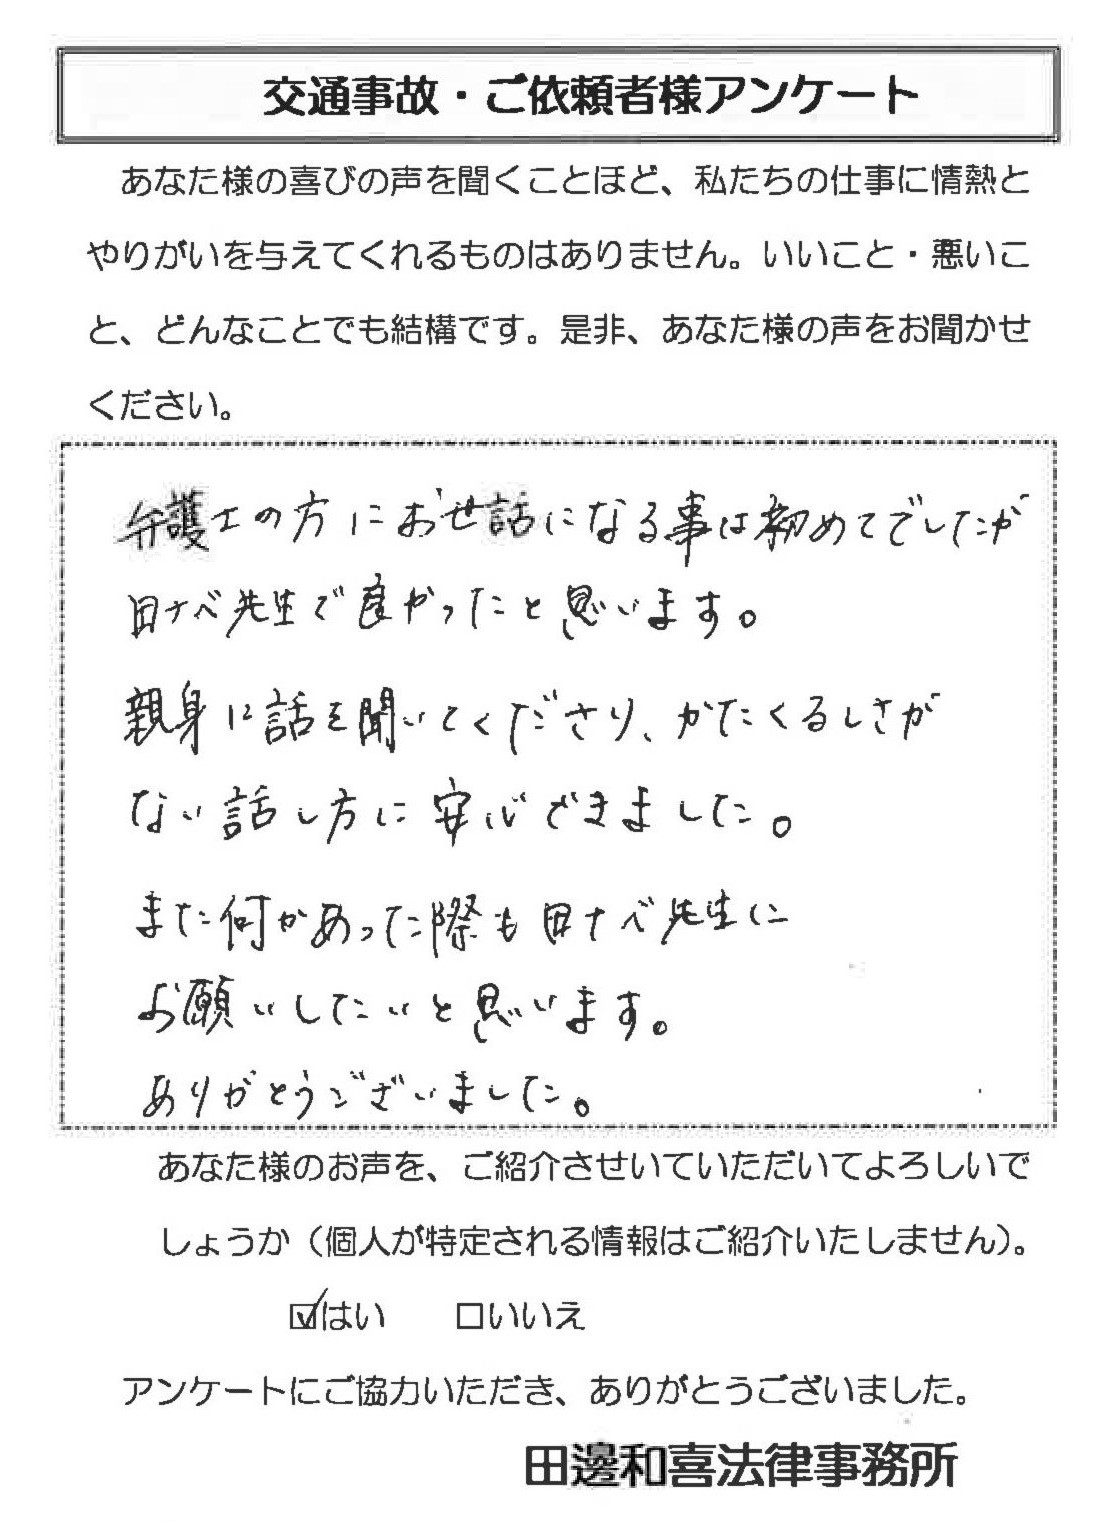 交通事故・ご依頼者様アンケート
あなた様の喜びの声を聞くことほど、私たちの仕事に情熱と
やりがいを与えてくれるものはありません。いいこと・悪いこ
と、どんなことでも結構です。是非、あなた様の声をお聞かせ
ください。
弁護士の方にお世話になる事は初めてでしたが
田ナベ先生で良かったと思います。
親身に話を聞いてくださり、かたくるしさが
ない話し方に安心できました。
また何かあった際も田ナベ先生に
お願いしたいと思います。
ありがとうございました。
あなた様のお声を、ご紹介させいていただいてよろしいで
しょうか（個人が特定される情報はご紹介いたしません）。
☑はい　□いいえ
アンケートにご協力いただき、ありがとうございました。
田邊和喜法律事務所